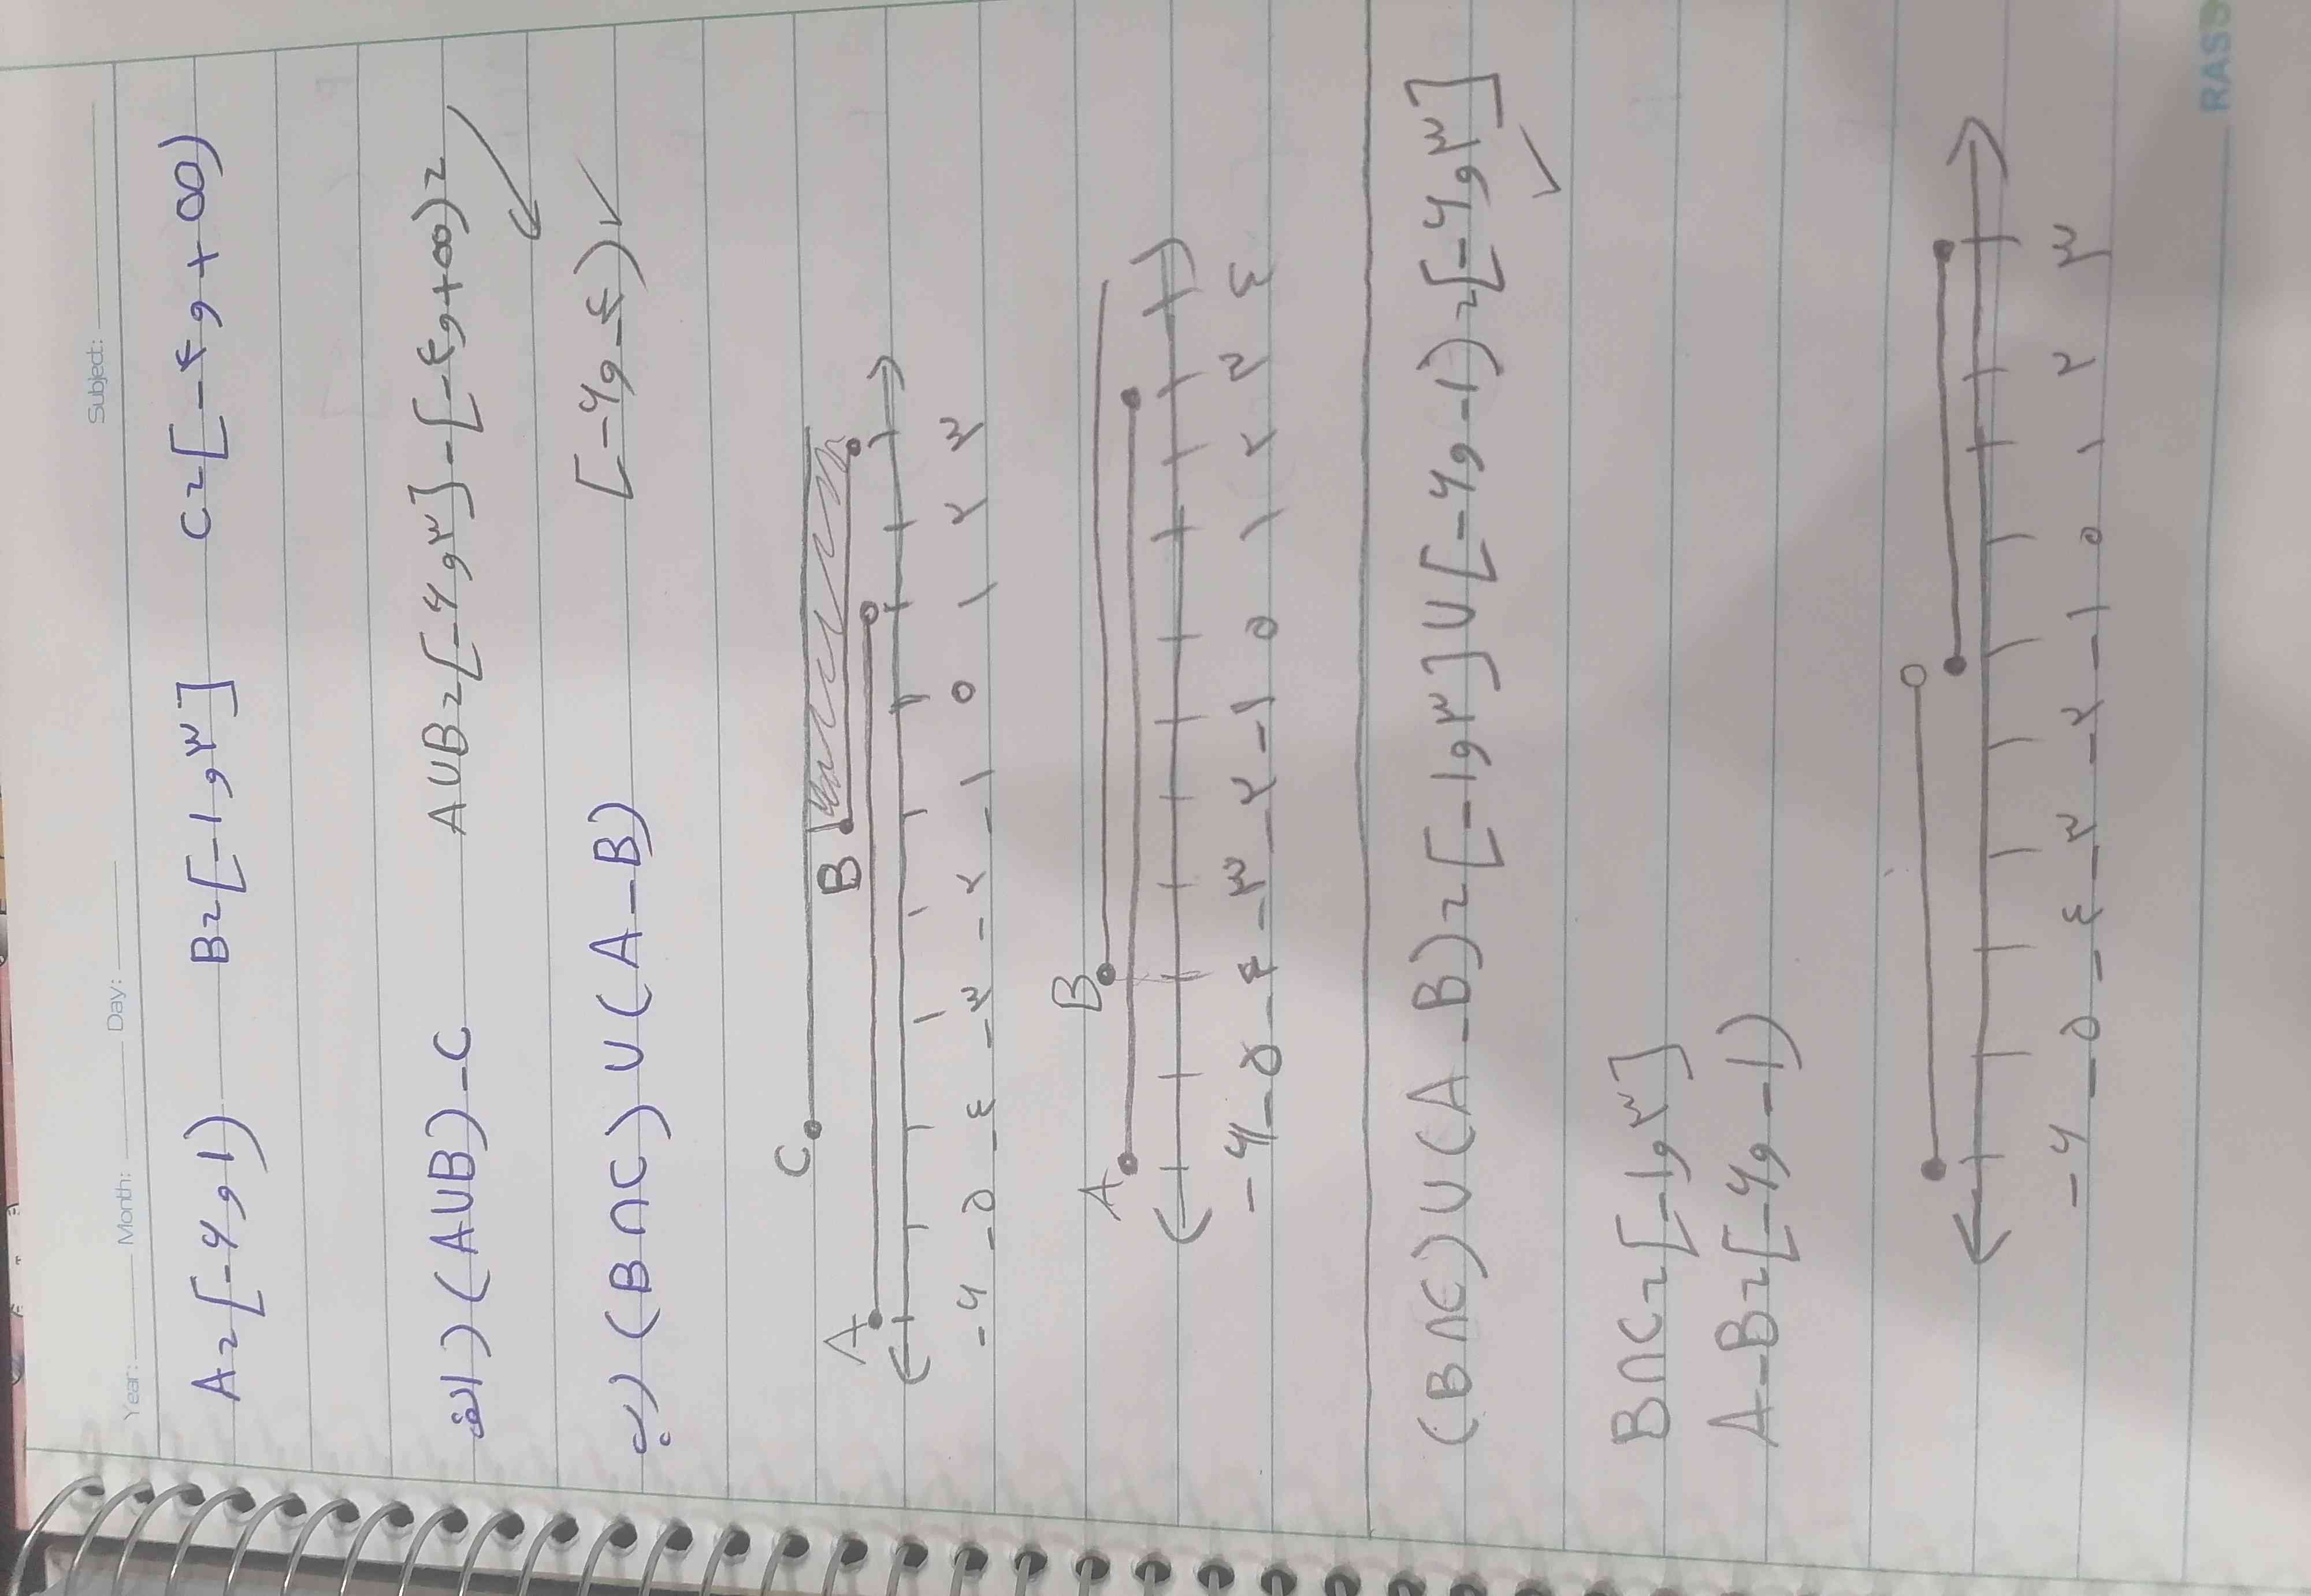 Year: Month: Day: Subject:
A = [-۶ و ۱) B = [-۱ و ۳] C = [-۴ و +∞)
الف) (A∪B)-C A∪B = [-۶ و ۳]-[-۴ و +∞) =
ب) (B∩C) ∪ (A-B) [-۶ و -۴) ✓
C
B
A
-۶ -۵ -۴ -۳ -۲ -۱ ۰ ۱ ۲ ۳
B
A
-۶ -۵ -۴ -۳ -۲ -۱ ۰ ۱ ۲ ۳ ۴
(B∩C) ∪ (A-B) = [-۱ و ۳] ∪ [-۶ و -۱) = [-۶ و ۳] ✓
B∩C = [-۱ و ۳]
A-B = [-۶ و -۱)
-۶ -۵ -۴ -۳ -۲ -۱ ۰ ۱ ۲ ۳